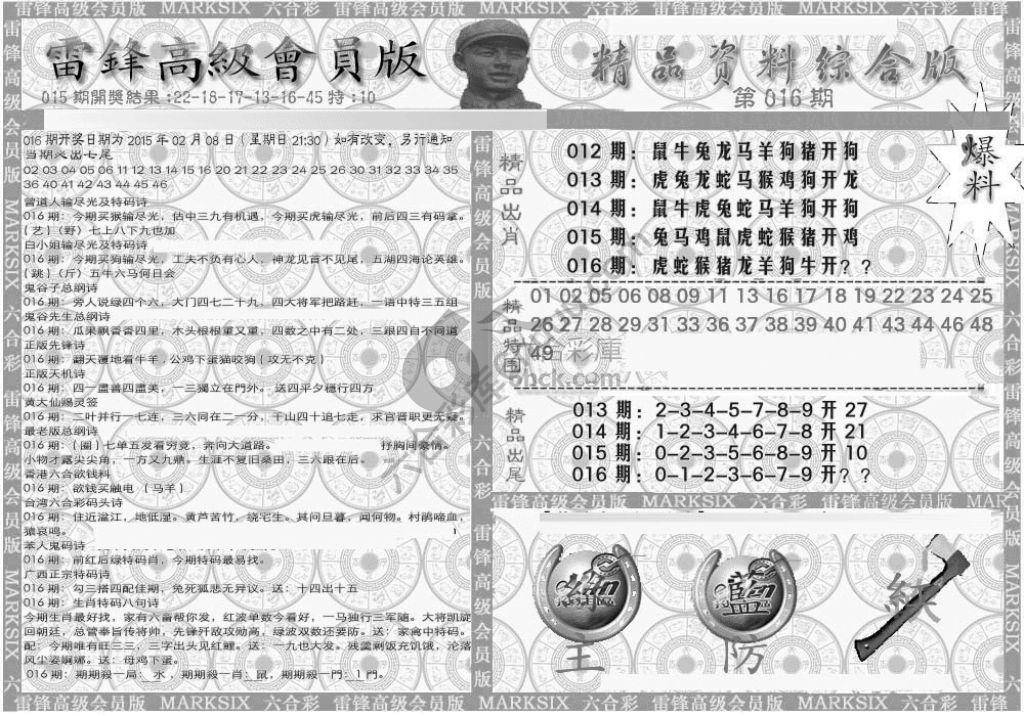 雷锋高级会员版 MARKSIX 六合彩 雷锋高级会员版 MARKSIX 六合彩 雷锋高级会员版 MARKSIX 六合彩 雷锋
雷鋒高級會員版
015期開獎結果:22-18-17-13-16-45特:10
精品资料综合版
第016期
爆料
016期开奖日期为2015年02月08日(星期日21:30)如有改变,另行通知
当期必出七尾
02 03 04 05 06 11 12 13 14 15 16 20 21 22 23 24 25 26 30 31 32 33 34 35
36 40 41 42 43 44 45 46
曾道人输尽光及特码诗
016期:今期买猴输尽光,估中三九有机遇,今期买虎输尽光,前后四三有码拿。
(艺)(野)七上八下九也加
白小姐输尽光及特码诗
016期:今期买狗输尽光,工夫不负有心人,神龙见首不见尾,五湖四海论英雄。
(跳)(斤)五牛六马何日会
鬼谷子总纲诗
016期:旁人说绿四个六,大门四七二十九,四大将军把路赶,一语中特三五组
鬼谷先生总纲诗
016期:瓜果飘香香四里,木头根根重又重,四数之中有二处,三跟四自不同道
正版先锋诗
016期:翻天覆地看牛羊,公鸡下蛋猫咬狗(攻无不克)
正版天机诗
016期:四一盡善四盡美,一三獨立在門外。送四平夕穗行四方
黄大仙赐灵签
016期:二叶并行一七连,三六同在二一分,干山四十追七走,求官晋职更无疑。
最老版总纲诗
016期:(圈)七单五发看穷竟,奔向大道路。 抒胸间豪情。
小物才露尖尖角,一方又九鼎。生涯不复旧桑田,三六跟在后。
香港六合欲钱料
016期:欲钱买触电 (马羊)
台湾六合彩码头诗
016期:住近湓江,地低湿。黄芦苦竹,绕宅生。其问旦暮,闻何物。村鹃啼血,
猿哀鸣。
苯人鬼码诗
016期:前红后绿特码肖,今期特码最易找。
广西正宗特码诗
016期:勾三搭四配佳期,兔死狐悲无异议。送:十四出十五
016期:生肖特码八句诗
今期生肖最好找,家有六畜帮你发,红波单数今看好,一马独行三军随。大将凯旋
回朝廷,总管奉旨传将帅,先锋歼敌攻勋高,绿波双数还要防。送:家禽中特码。
配:今期唯有旺三三,三字出头见红鲤。送:一九也大发。残羹剩饭充饥饿,沦落
风尘姿婀娜。送:母鸡下蛋。
016期:期期殺一局:水,期期殺一肖:鼠,期期殺一門:1門。
精品出肖
012期:鼠牛兔龙马羊狗猪开狗
013期:虎兔龙蛇马猴鸡狗开龙
014期:鼠牛虎兔蛇马羊狗开狗
015期:兔马鸡鼠虎蛇猴猪开鸡
016期:虎蛇猴猪龙羊狗牛开??
精品特围
01 02 05 06 08 09 11 13 16 17 18 19 22 23 24 25
26 27 28 29 31 33 36 37 38 39 40 41 43 44 46 48
49
精品出尾
013期:2-3-4-5-7-8-9开27
014期:1-2-3-4-6-7-8开21
015期:0-2-3-5-6-8-9开10
016期:0-1-2-3-6-7-9开??
雷锋高级会员版 MARKSIX 六合彩 雷锋高级会员版 MARKSIX
綠
主
藍
防
紅
雷锋高级会员版 MARKSIX 六合彩 雷锋高级会员版 MARKSIX 六合彩 雷锋高级会员版 MARKSIX 六合彩 雷锋